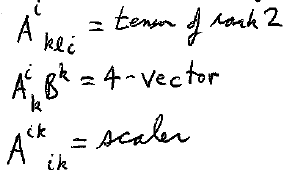 A^i_{kli} = tensor of rank 2
A^i_k B^k = 4-vector
A^{ik}_{ik} = scaler